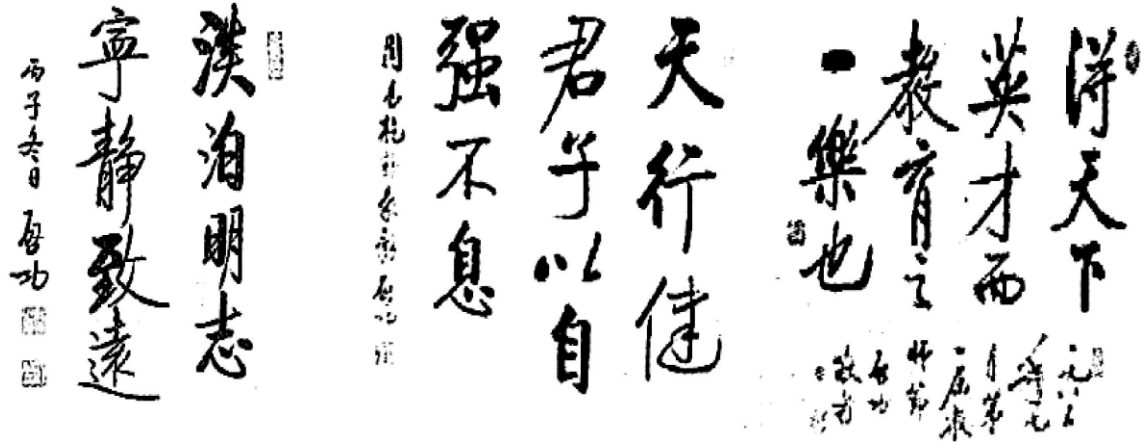 得天下
英才而
教育之
一樂也
天行健
君子以自
强不息
淡泊明志
寧静致遠
丙子冬日 启功